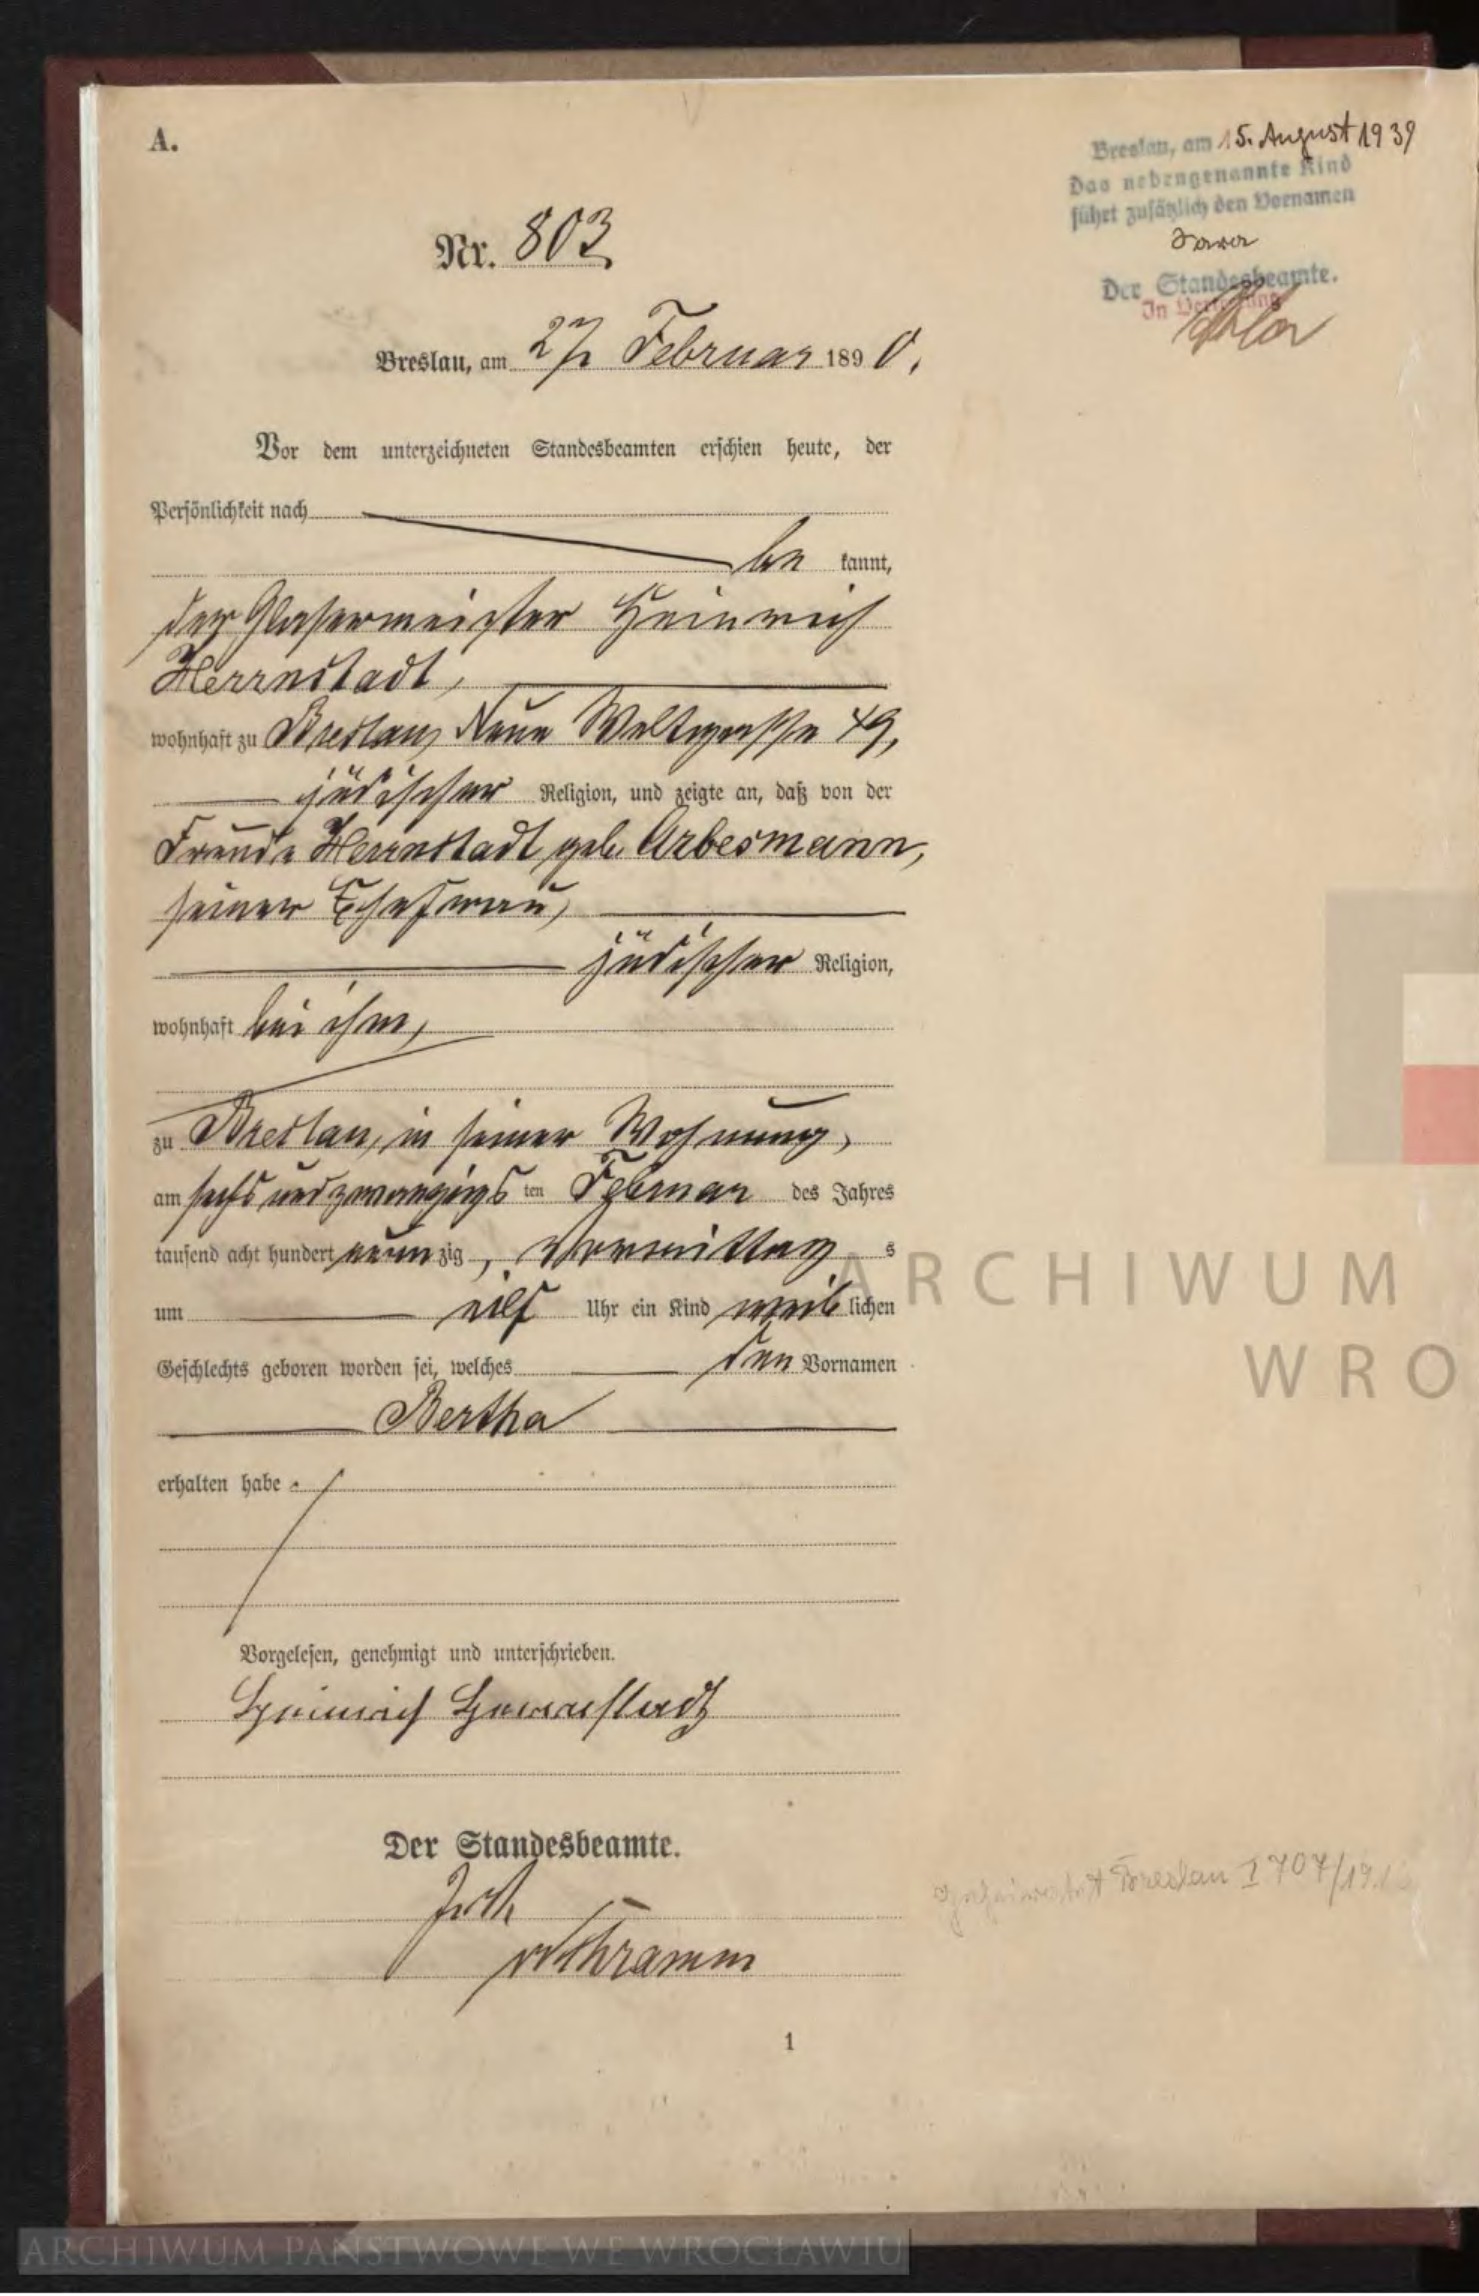 A.
Breslau, am 15. August 1939
Das nebengenannte Kind
führt zusätzlich den Vornamen
Sara
Der Standesbeamte.
In Vertretung
Nr. 803
Breslau, am 27 Februar 1890.
Vor dem unterzeichneten Standesbeamten erschien heute, der
Persönlichkeit nach
be kannt,
der Glasermeister Heinrich
Herrnstadt,
wohnhaft zu Breslau, Neue Weltgasse 49,
jüdischer Religion, und zeigte an, daß von der
Freude Herrnstadt geb. Arbesmann,
seiner Ehefrau,
jüdischer Religion,
wohnhaft bei ihm,
zu Breslau, in seiner Wohnung,
am sechs und zwanzigs ten Februar des Jahres
tausend acht hundert neun zig, Vormittag s
um eilf Uhr ein Kind weib lichen
Geschlechts geboren worden sei, welches den Vornamen
Bertha
erhalten habe.
Vorgelesen, genehmigt und unterschrieben.
Heinrich Herrnstadt
Der Standesbeamte.
1
Breslau I 707/19
ARCHIWUM
WRO
ARCHIWUM PAŃSTWOWE WE WROCŁAWIU